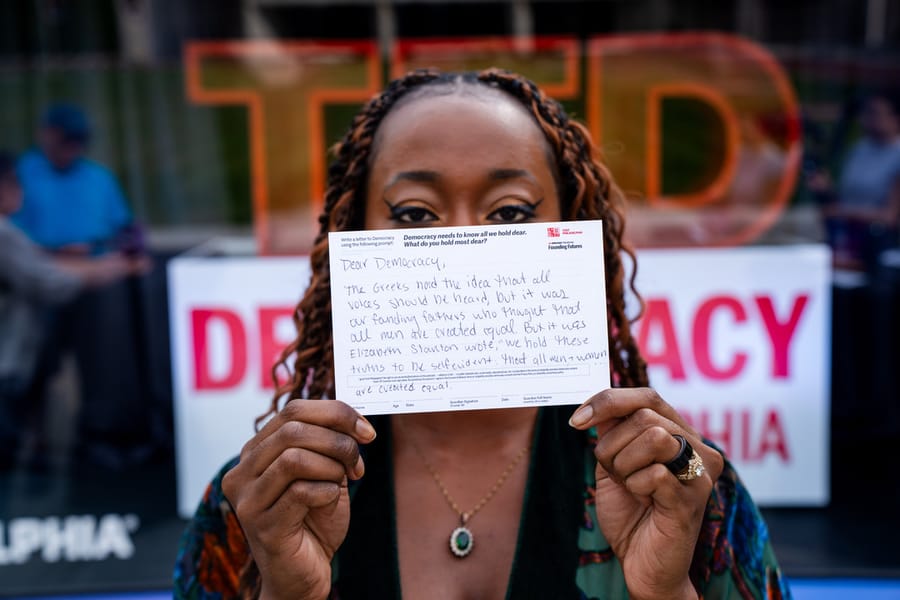 TED
Write a letter to Democracy
using the following prompt:
Democracy needs to know all we hold dear.
What do you hold most dear?
Founding Futures
Dear Democracy,
The Greeks hold the idea that all
voices should be heard, but it was
our founding fathers who thought that
all men are created equal. But it was
Elizabeth Stanton wrote, "we hold these
truths to be self evident. That all men + women
are created equal.
Name Age State Guardian Signature Date Guardian Full Name
DE
CRACY
HIA
LPHIA